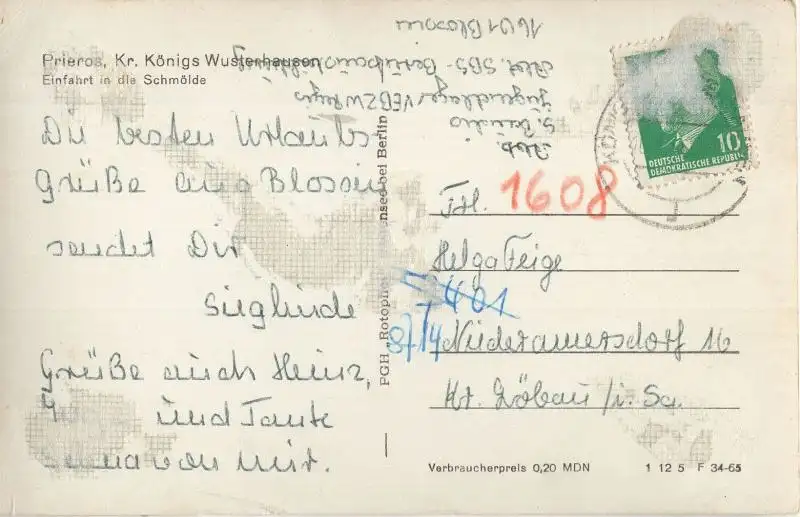 Prieros, Kr. Königs Wusterhausen
Einfahrt in die Schmölde
Die besten Urlaubs-
Grüße aus Blossin
sendet Dir
Sieglinde
Grüße auch Heinz,
und Tante
von mir.
Abs.
S.
Jugendlager VEB ZW
Abt. 585 -
1601 Blossin
PGH „Rotophot" nsee bei Berlin
10
DEUTSCHE
DEMOKRATISCHE REPUBLIK
KÖN
1608
Frl.
Helga Feige
401
8714
Niedercunnersdorf 16
Kr. Löbau / i. Sa.
Verbraucherpreis 0,20 MDN
1 12 5 F 34-65